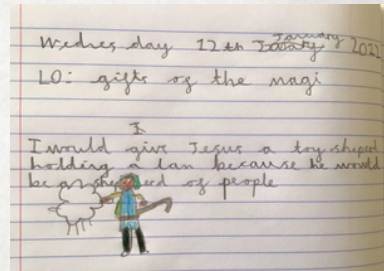 Wednesday 12th January 2022
LO: gifts of the magi
I would give Jesus a toy sheperd
holding a lam because he would
be a sheperd of people